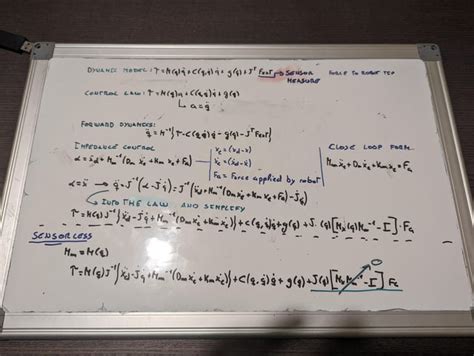 DYNAMIC MODEL: τ = M(q)q̈ + C(q,q̇)q̇ + g(q) + Jᵀ Fext → SENSOR MEASURE FORCE TO ROBOT TCP
CONTROL LAW: τ = M(q)a + C(q,q̇)q̇ + g(q)
↳ a = q̈
FORWARD DYNAMICS: q̈ = M⁻¹{τ - C(q,q̇)q̇ - g(q) - JᵀFext}
IMPEDENCE CONTROL
CLOSE LOOP FORM
α = ẍd + Mm⁻¹(Dm ẋe + Km xe + Fa)
xe = (xd - x)
ẋe = (ẋd - ẋ)
Fa = Force applied by robot
Mm ẍe + Dm ẋe + Km xe = Fa
α = ẍ → q̈ = J⁻¹(α - J̇q̇) = J⁻¹(ẍd + Mm⁻¹(Dm ẋe + Km xe + Fa) - J̇q̇)
INTO THE LAW AND SEMPLIFY
τ = M(q)J⁻¹{ẍd - J̇q̇ + Mm⁻¹(Dm ẋe + Km xe)} + C(q,q̇)q̇ + g(q) + J(q)[Mx(q)Mm⁻¹ - I] · Fa
SENSORLESS
Mm = M(q)
τ = M(q)J⁻¹{ẍd - J̇q̇ + Mm⁻¹(Dm ẋe + Km xe)} + C(q,q̇)q̇ + g(q) + J(q)[Mx Mm⁻¹ - I] Fa
0